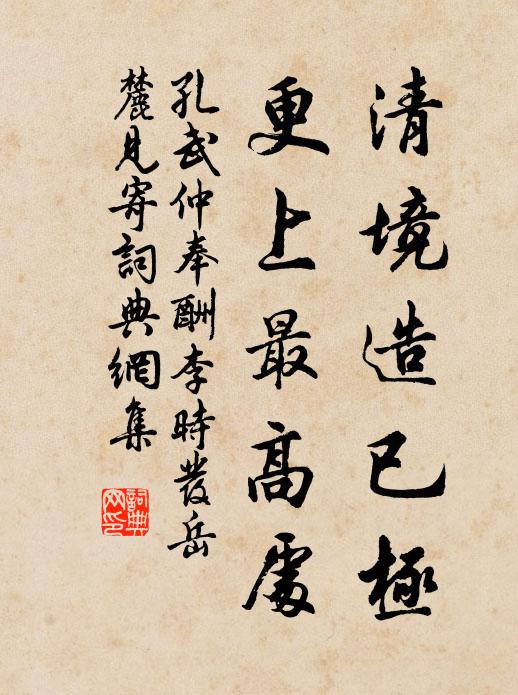 清境造已極
更上最高處
孔武仲奉酬李時發岳
麓見寄詞典網集
詞典網印